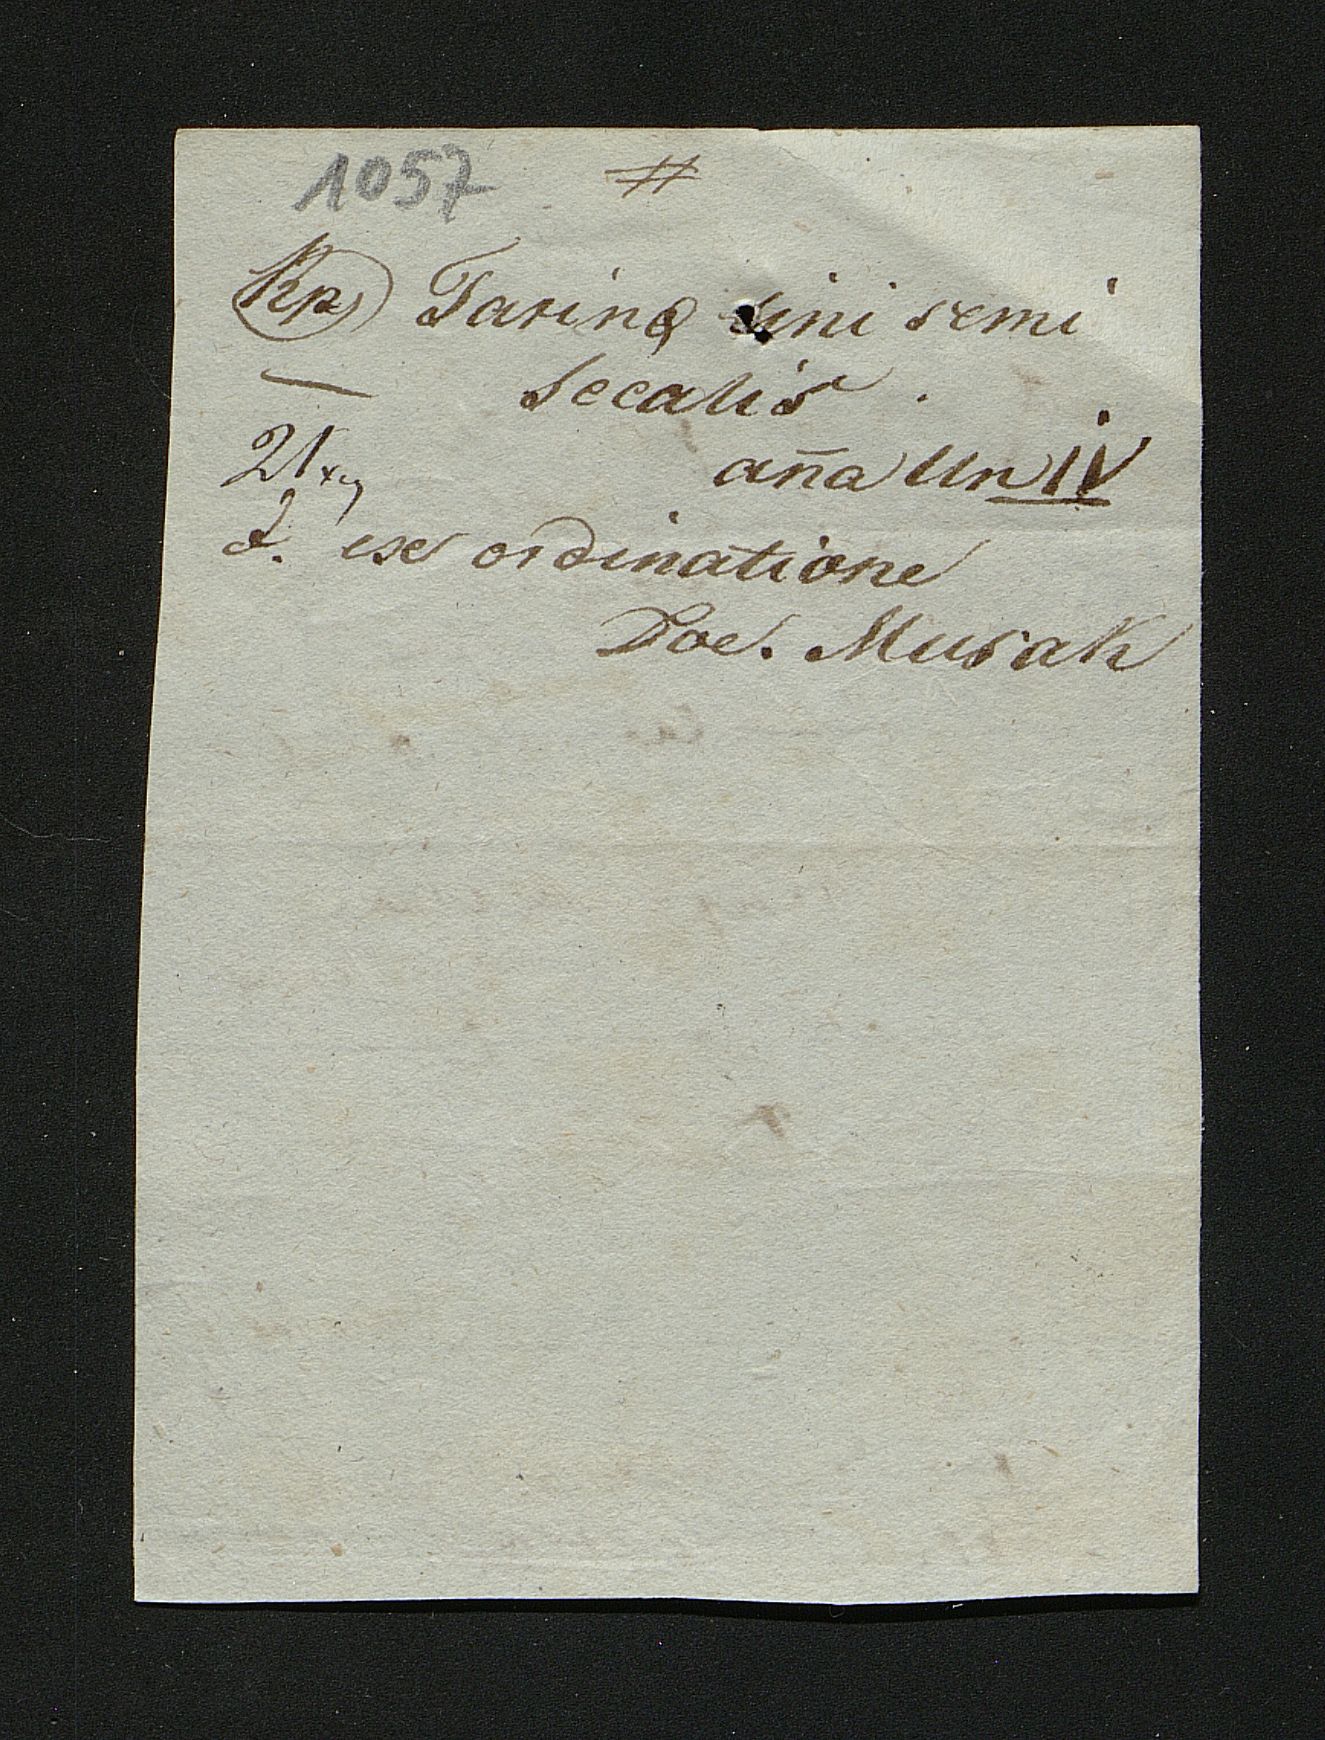 1057 #
Rp Farinę Lini semi
Secalis.
aña Un IV
21 xr
d. ex ordinatione
Doc. Musak